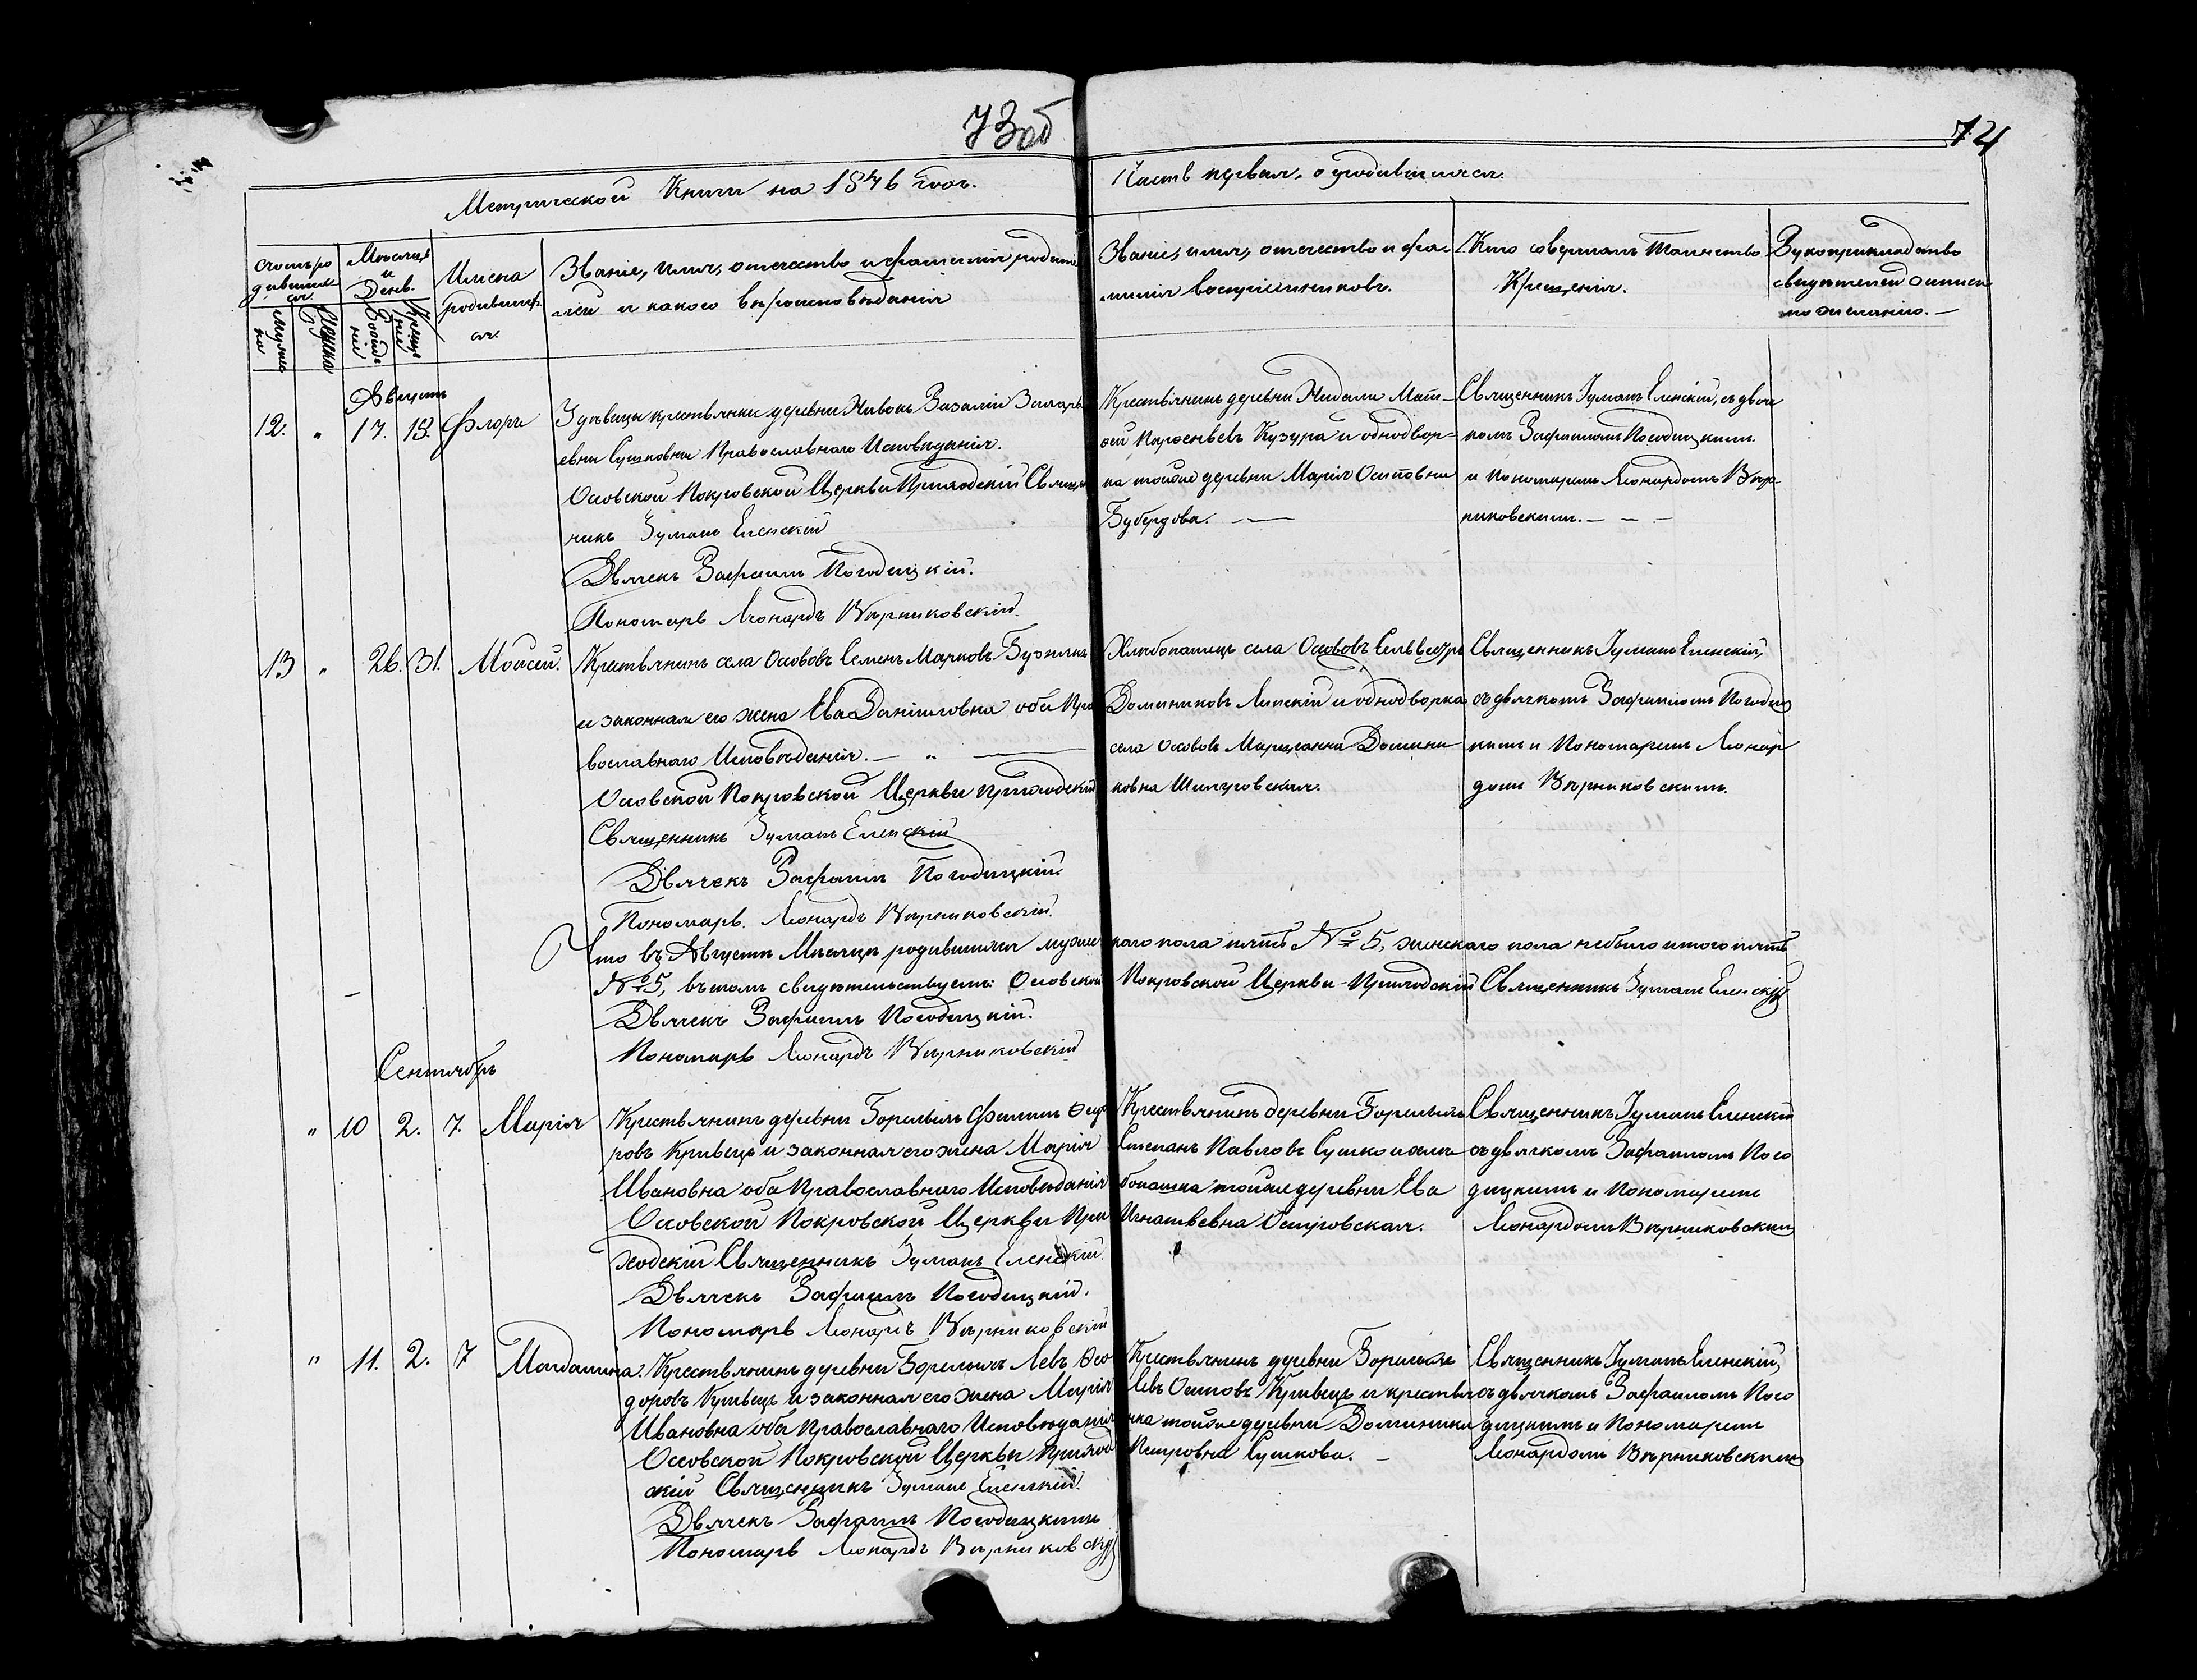 73об
74
Метрической Книги на 1846 годъ.
Часть первая, о родившихся.
Счетъ родившихся.
Мѣсяцъ и День.
Имена родившихся.
Званіе, имя, отечество и фамилія родителей и какого вѣроисповѣданія
Званіе, имя, отечество и фамилія воспріемниковъ.
Кто совершалъ Таинство Крещенія.
Рукоприкладство свидѣтелей о записи по желанію. —
Мужеска
Женска
Рождения
Крещение
Августъ
12. „ 17. 18. Флоръ
У дѣвицы крестьянки деревни
евны Сушковны Православнаго Исповѣданія.
Осовской Покровской Церкви Приходскій Священ
никъ Еленскій
Дьячекъ Рафаилъ Погодицкій.
Пономарь Леонардъ Вѣрниковскій.
Крестьянинъ деревни
Кузура и однодвор=
ка тойже деревни Марія Осиповна
Священникъ Еленскій, съ дьяч
комъ Рафаиломъ Погодицкимъ
и Пономаремъ Леонардомъ Вѣр
никовскимъ. — — —
13 „ 26. 31. Моисей.
Крестьянинъ села Осововъ Семенъ Марковъ
и законная его жена Ева Даніиловна оба Пра
вославнаго Исповѣданія. — „ —
Осовской Покровской Церкви приходскій
Священникъ Еленскій
Дьячекъ Рафаилъ Погодицкій.
Пономарь. Леонардъ Вѣрниковскій.
Хлѣбопашецъ села Осововъ Сельвестръ
Доминиковъ Липскій и однодворка
села Осововъ Марцianna Домини
ковна
Священникъ Еленскій,
съ дьячкомъ Рафаиломъ Погодиц
кимъ и Пономаремъ Леонар
домъ Вѣрниковскимъ.
Что въ Августѣ Мѣсяцѣ родившихся мужескаго пола пять № 5, женскаго пола небыло итого пять
№ 5, въ томъ свидѣтельствуемъ: Осовской Покровской Церкви Приходскій Священникъ Еленскій
Дьячекъ Рафаилъ Погодицкій.
Пономарь Леонардъ Вѣрниковскій
Сентябрь
„ 10 2. 7. Марія
Крестьянинъ деревни Филипъ Ѳедо
ровъ Кривецъ и законная его жена Марія
Ивановна оба Православнаго Исповѣданія
Осовской Покровской Церкви При
ходскій Священникъ Еленскій.
Дьячекъ Рафаилъ Погодицкій.
Пономарь Леонардъ Вѣрниковскій
Крестьянинъ деревни
Степанъ Павловъ Сушко и хлѣ
бопашка тойже деревни Ева
Игнатьевна Островская.
Священникъ Еленскій
съ дьячкомъ Рафаиломъ Пого
дицкимъ и Пономаремъ
Леонардомъ Вѣрниковскимъ
„ 11. 2. 7 Магдалина.
Крестьянинъ деревни Левъ Ѳео
доровъ Кривецъ и законная его жена Марія
Ивановна оба Православнаго Исповѣданія
Осовской Покровской Церкви Приход
скій Священникъ Еленскій.
Дьячекъ Рафаилъ Погодицкимъ
Пономарь Леонардъ Вѣрниковскій
Крестьянинъ деревни
Левъ Осиповъ Кривецъ и крестьян
ка тойже деревни Доминика
Петровна Сушкова. —
Священникъ Еленскій,
съ дьячкомъ Рафаиломъ Пого
дицкимъ и Пономаремъ
Леонардомъ Вѣрниковскимъ